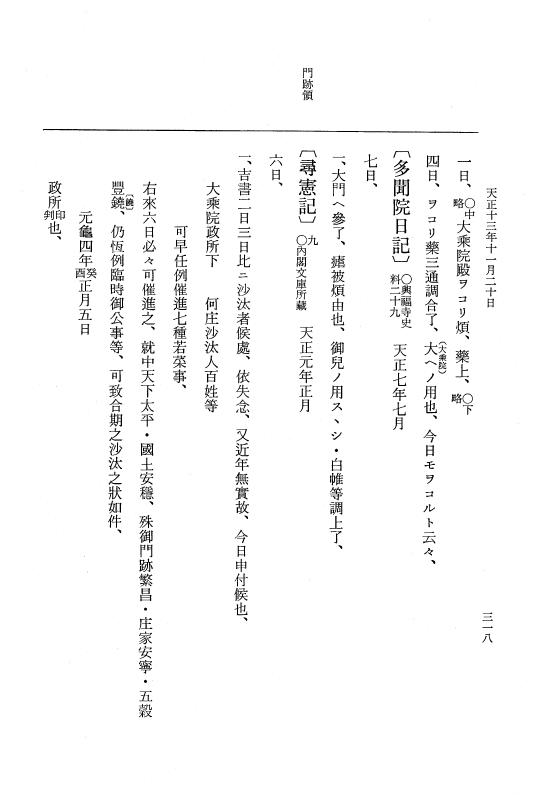 天正十三年十一月二十日
三一八
門跡領
一日、○中略大乘院殿ヲコリ煩、藥上、○下略
四日、ヲコリ藥三通調合了、大へ(大乘院)ノ用也、今日モヲコルト云々、
〔多聞院日記〕○興福寺史料二十九 天正七年七月
七日、
一、大門へ參了、瘧被煩由也、御兒ノ用スヽシ・白帷等調上了、
〔尋憲記〕九○內閣文庫所藏 天正元年正月
六日、
一、吉書二日三日比ニ沙汰者候處、依失念、又近年無實故、今日申付候也、
大乘院政所下 何庄沙汰人百姓等
可早任例催進七種若菜事、
右來六日必々可催進之、就中天下太平・國土安穩、殊御門跡繁昌・庄家安寧・五穀
豐鐃〔饒〕、仍恆例臨時御公事等、可致合期之沙汰之狀如件、
元龜四年癸酉正月五日
政所判印也、